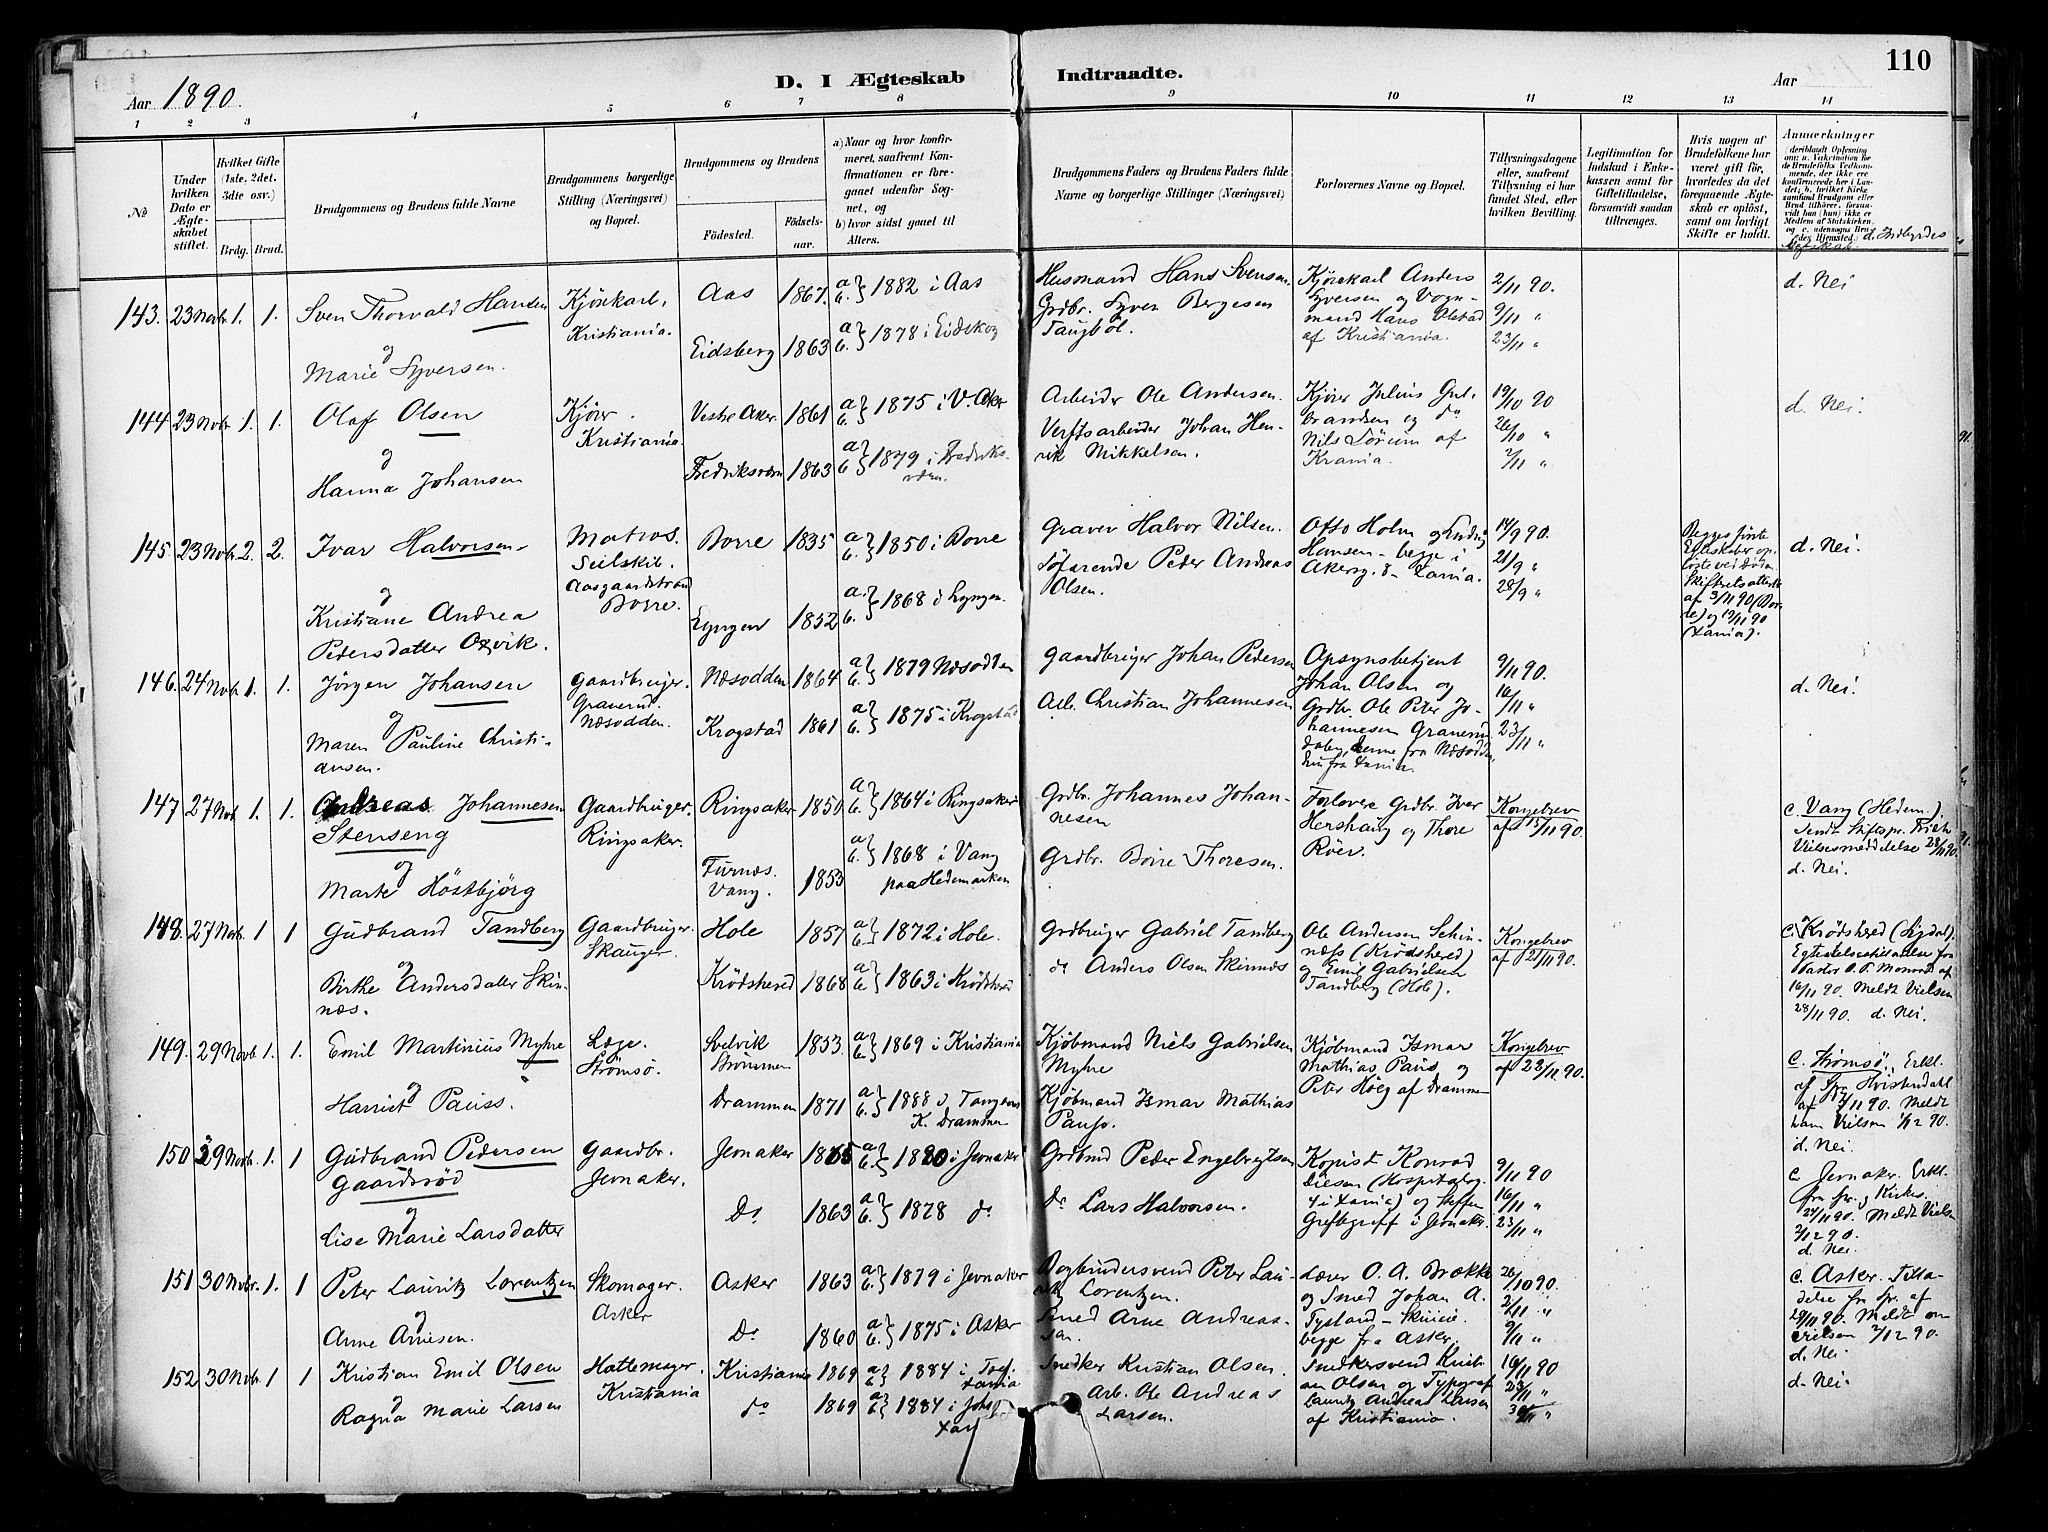 110
Aar 1890.
D. I Ægteskab Indtraadte.
Aar
1 2 3 4 5 6 7 8 9 10 11 12 13 14
No
Under hvilken Dato er Ægteskabet stiftet.
Hvilket Gifte (1ste, 2det, 3die osv.)
Brdg. Brud.
Brudgommens og Brudens fulde Navne
Brudgommens borgerlige Stilling (Næringsvei) og Bopæl.
Brudgommens og Brudens
Fødested. Fødselsaar.
a) Naar og hvor konfirmeret, saafremt Konfirmationen er foregaaet udenfor Sognet, og
b) hvor sidst gaaet til Alters.
Brudgommens Faders og Brudens Faders fulde Navne og borgerlige Stillinger (Næringsvei)
Forlovernes Navne og Bopæl.
Tillysningsdagene eller, saafremt Tillysning ei har fundet Sted, efter hvilken Bevilling.
Legitimation for Indskud i Enkekassen samt for Giftetilladelse, forsaavidt saadan tiltrænges.
Hvis nogen af Brudefolkene har været gift før, hvorledes da det foregaaende Ægteskab er opløst, samt om lovligt Skifte er holdt.
Anmærkninger
143. 23 Novbr. 1. 1. Sven Thorvald Hansen
og
Marie Syversen.
Kjørekarl, Kristiania.
Aas 1867. a b. } 1882 i Aas
Eidsberg 1863 a b. } 1878 i Eidskog
Husmand Hans Svensen
Grdbr. Syver Bergesen Taugbøl.
Kjørekarl Anders Syversen og Vognmand Hans Olstad af Kristiania.
2/11 90.
9/11 "
23/11 "
d. Nei
144 23 Novbr. 1. 1. Olaf Olsen
og
Hanna Johansen
Kjører. Kristiania.
Vestre Aker 1861 a b. } 1875 i V. Aker
Fredriksværn 1863 a b. } 1879 i Fredriksværn
Arbeider Ole Andersen.
Verftsarbeider Johan Henrik Mikkelsen.
Kjører Julius Gulbrandsen og do Nils Sørum af Krania.
19/10 90
26/10 "
2/11 "
d. Nei.
145. 23 Novbr. 2. 2. Ivar Halvorsen
og
Kristiane Andrea Pedersdatter Oxvik.
Matros. Seilskib. Aasgaardstrand Borre.
Borre 1835 a b. } 1850 i Borre
Lyngør 1852 a. b. } 1868 i Lyngør.
Graver Halvor Nilsen.
Søfarende Peter Andreas Olsen.
Otto Holm og Hansen - begge i Akersg. 8 - Xania.
14/9 90.
21/9 "
28/9 "
Begges første Egteskaber opløste ved Døden. Skifteretsattester af 3/11 90 (Borre) og 19/11 90 (Xania).
d. Nei.
146. 24 Novbr. 1. 1. Jørgen Johansen
og
Maren Pauline Christiansen.
Gaardbruger. Graverud. Næsodden.
Næsodden 1864 a b. } 1879 Næsodden
Krogstad 1861 a b. } 1875 i Krogstad
Gaardbruger Johan Pedersen
Arb. Christian Johannesen
Opsynsbetjent Johan Olsen og Grdbr. Ole Peter Johannesen Graveruddalen, denne fra Næsodden, hin fra Xania.
9/11 90.
16/11 "
23/11 "
d. Nei.
147 27 Nob. 1. 1. Andreas Johannesen Stenseng
og
Marte Høstbjørg
Gaardbruger. Ringsaker.
Ringsaker 1850 a b. } 1864 i Ringsaker
Furnæs. Vang. 1853 a b. } 1868 i Vang paa Hedemarken
Grdbr. Johannes Johannesen
Grdbr. Børre Thoresen.
Forlovere Grdbr. Iver Hershaug og Thore Röer.
Kongebrev af 15/11 90.
c. Vang (Hedem.). Sendt Stiftspr. Vielsesmeddelelse 28/11 90.
d. Nei.
148. 27 Novbr. 1 1 Gudbrand Tandberg
og
Birthe Andersdatter Skinnæs.
Gaardbruger. Skauger.
Hole 1857 a b. } 1872 i Hole.
Krødshered 1868 a b } 1863 i Krødshered
Grdbruger Gabriel Tandberg
do Anders Olsen Skinnæs
Ole Andersen Skinnæss (Krødshered) og Emil Gabrielsen Tandberg (Hole).
Kongebrev af 21/11 90.
c. Krødshered (Sigdal). Egteskabsattestelse fra Pastor O. P. Monrad af 16/11 90. Meldt Vielsen 28/11 90. d. Nei.
149. 29 Novb. 1. 1. Emil Martinius Myhre
og
Harriet Pauss.
Læge. Strømsø.
Svelvik Strømmen 1853 a b. } 1869 i Kristiania
Drammen 1871 a b. } 1888 i Tangens K. Drammen
Kjøbmand Niels Gabrielsen Myhre
Kjøbmand Ismar Mathias Pauss.
Kjøbmand Ismar Mathias Pauss og Peter Høeg af Drammen
Kongebrev af 28/11 90.
c. Strømsø. Erkl. af Spr. Hvistendahl af /11 90. Meldt ham Vielsen 1/12 90.
d. Nei.
150 29 Novbr. 1. 1 Gudbrand Pedersen Gaardsrød
og
Lise Marie Larsdatter
Gaardbr. Jevnaker.
Jevnaker 1865 a b. } 1880 i Jevnaker
Do 1863 a b. } 1878 do
Grdbmd Peder Engebregtsen
Do Lars Halvorsen.
Kopist Konrad Olesen (Hospitalsg. 4 i Xania) og Steffen Greftegreff i Jevnaker.
9/11 90
16/11 "
23/11 "
c. Jevnaker. Erkl. fra Spr. Kirkes. 24/11 90. Meldt Vielsen 2/12 90.
d. Nei.
151 30 Novbr. 1. 1 Peter Lauritz Lorentzen
og
Anne Arnesen.
Skomager. Asker
Asker 1863 a b. } 1879 i Jevnaker
Do 1860 a b. } 1875 i Asker
Bogbindersvend Peter Lauritz Lorentzen.
Smed Arne Andreassen.
Lærer O. A. Brække og Smed Johan A. Tysland - Skiine. begge fra Asker.
26/10 90.
2/11 "
9/11 "
c. Asker. Tilladelse fra Spr. af 29/11 90. Meldt om Vielsen 2/12 90.
d. Nei
152 30 Novbr. 1 1 Kristian Emil Olsen
og
Ragna Marie Larsen
Hattemager. Kristiania
Kristiania 1869 a b. } 1884 i Xania
do 1869 a b. } 1884 i Johs. Xan
Snedker Kristian Olsen.
Arb. Ole Andreas Larsen.
Snedkersvend Kristian Olsen og Typograf Lauritz Andreas Larsen af Kristiania.
16/11 90
23/11 "
30/11 "
d. Nei.